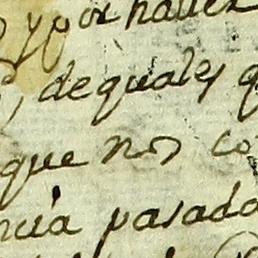 y por haver
, de quales q
que nos co
ncia pasado